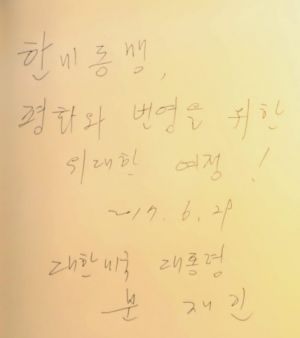 한미동맹,
평화와 번영을 위한
위대한 여정!
2017. 6. 29
대한민국 대통령
문 재 인